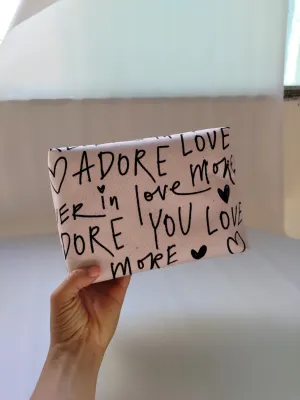 ADORE LOVE
ER in love more
DORE YOU LOVE
more